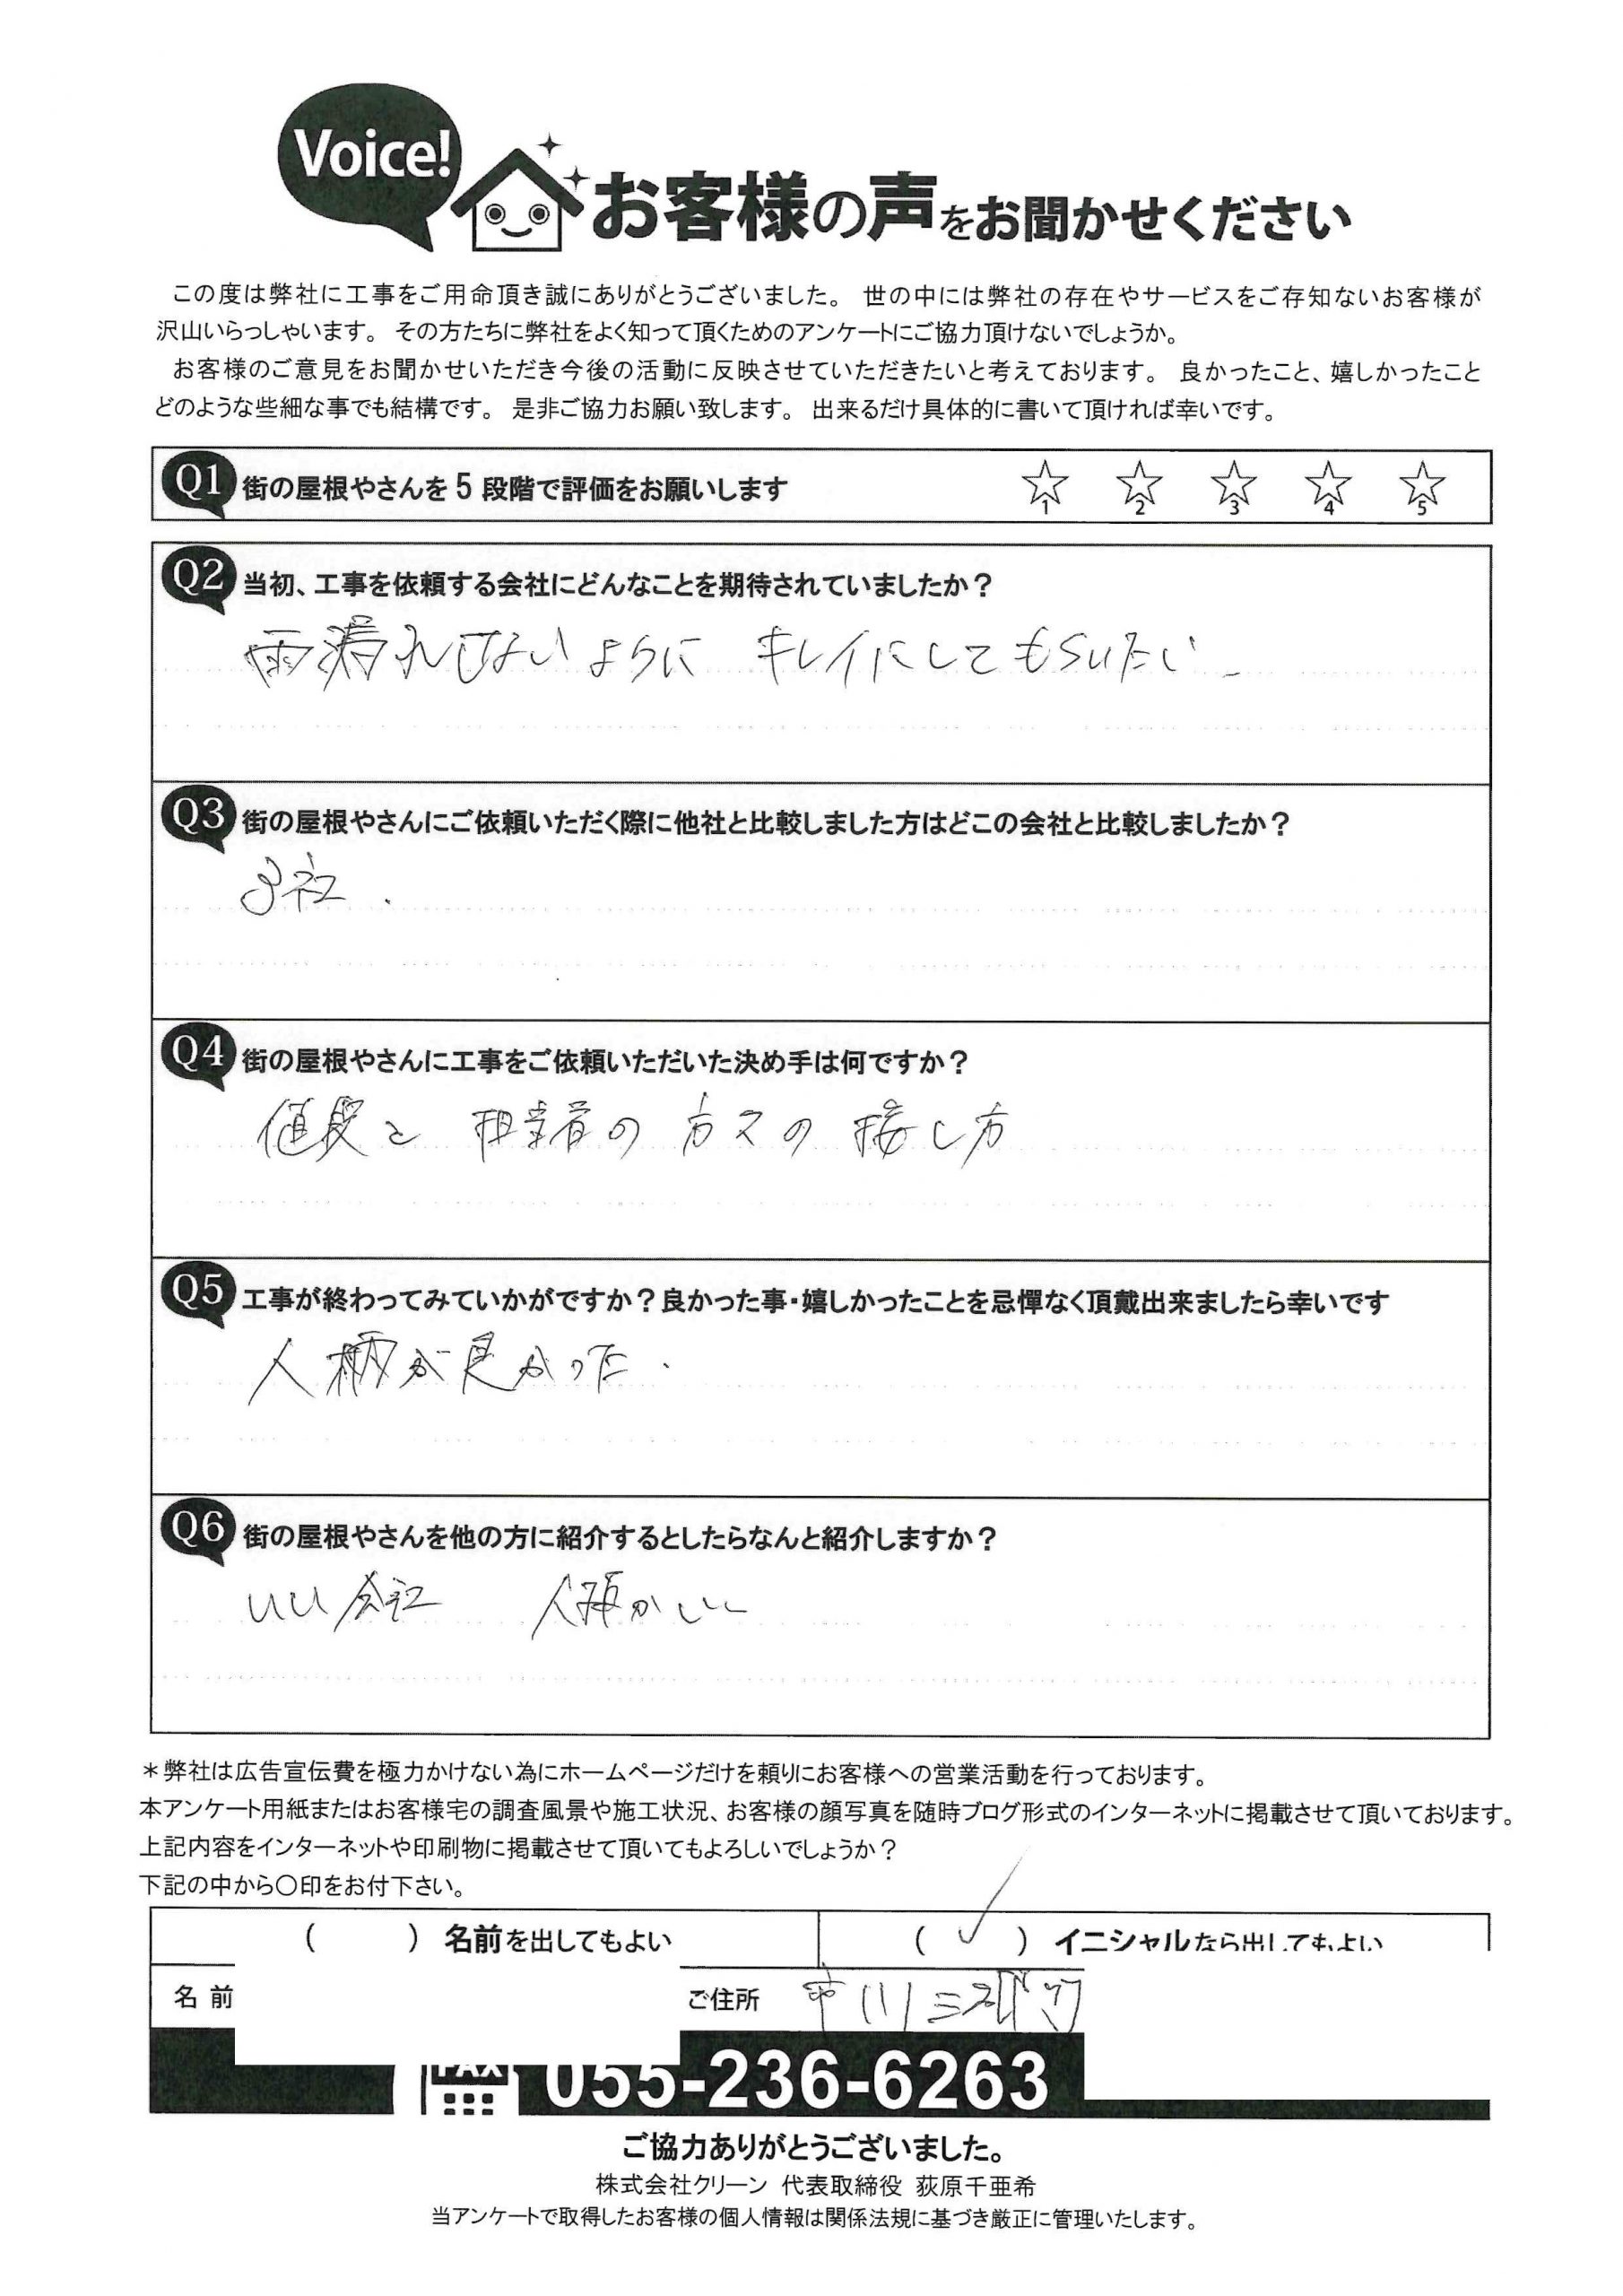 Voice!
お客様の声をお聞かせください
この度は弊社に工事をご用命頂き誠にありがとうございました。 世の中には弊社の存在やサービスをご存知ないお客様が
沢山いらっしゃいます。 その方たちに弊社をよく知って頂くためのアンケートにご協力頂けないでしょうか。
お客様のご意見をお聞かせいただき今後の活動に反映させていただきたいと考えております。 良かったこと、嬉しかったこと
どのような些細な事でも結構です。 是非ご協力お願い致します。 出来るだけ具体的に書いて頂ければ幸いです。
Q1 街の屋根やさんを5段階で評価をお願いします ☆1 ☆2 ☆3 ☆4 ☆5
Q2 当初、工事を依頼する会社にどんなことを期待されていましたか?
雨漏れしないように キレイにしてもらいたい
Q3 街の屋根やさんにご依頼いただく際に他社と比較しました方はどこの会社と比較しましたか?
3社.
Q4 街の屋根やさんに工事をご依頼いただいた決め手は何ですか?
値段と 担当者の 方々の 接し方
Q5 工事が終わってみていかがですか?良かった事・嬉しかったことを忌憚なく頂戴出来ましたら幸いです
人柄が良かった.
Q6 街の屋根やさんを他の方に紹介するとしたらなんと紹介しますか?
いい会社 人柄がいい
＊弊社は広告宣伝費を極力かけない為にホームページだけを頼りにお客様への営業活動を行っております。
本アンケート用紙またはお客様宅の調査風景や施工状況、お客様の顔写真を随時ブログ形式のインターネットに掲載させて頂いております。
上記内容をインターネットや印刷物に掲載させて頂いてもよろしいでしょうか?
下記の中から〇印をお付下さい。
( ) 名前を出してもよい ( ✓ ) イニシャルなら出してもよい
名前 ご住所 市川三郷町
FAX 055-236-6263
ご協力ありがとうございました。
株式会社クリーン 代表取締役 荻原千亜希
当アンケートで取得したお客様の個人情報は関係法規に基づき厳正に管理いたします。